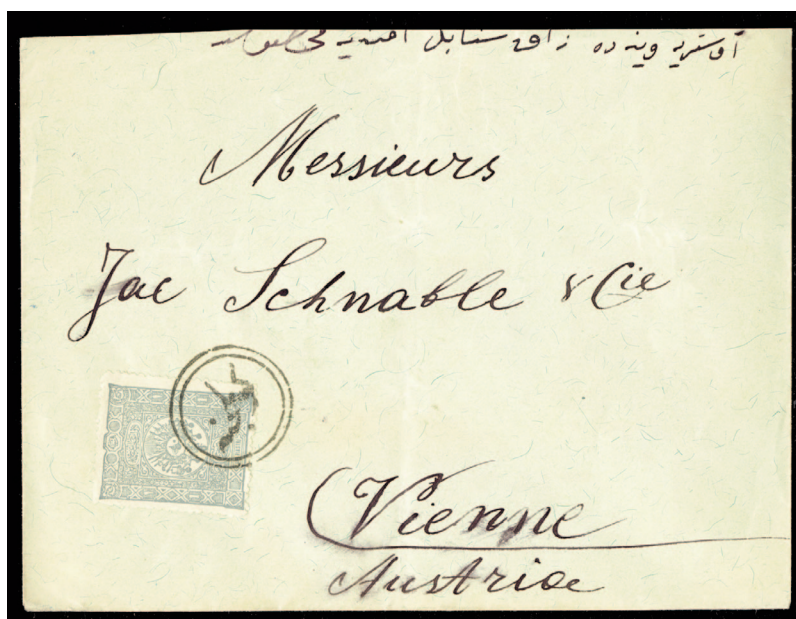 اوستريه وينه ده ژاق شنابل
Messieurs
Jac Schnable & Cie
Vienne
Austria